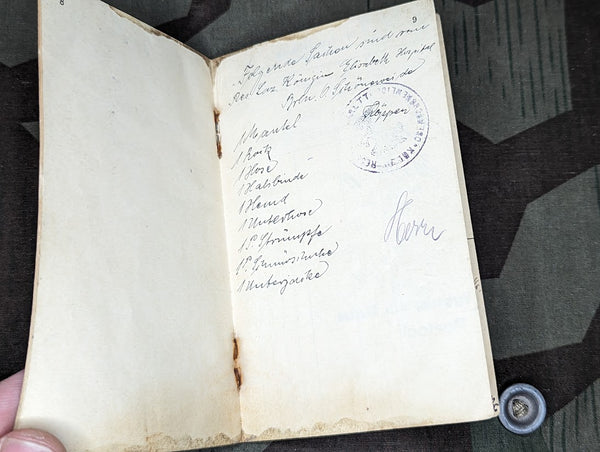 8
9
Folgende Sachen sind vom
Res. Laz. Königin Elisabeth Hospital
Bln. O. Schöneweide
1 Mantel
1 Rock
1 Hose
1 Halsbinde
1 Hemd
1 Unterhose
1 P. Strümpfe
1 P. Schnürschuhe
1 Unterjacke
Herrn